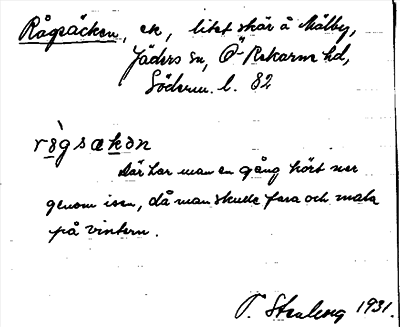 Rågsäcken, ett, litet skär å Mälby,
Jäders sn, Ö Rekarne hd,
Söderm. l. 82
rògsækən
där har man en gång kört ner
genom isen, då man skulle fara och mala
på vintern.
1931.